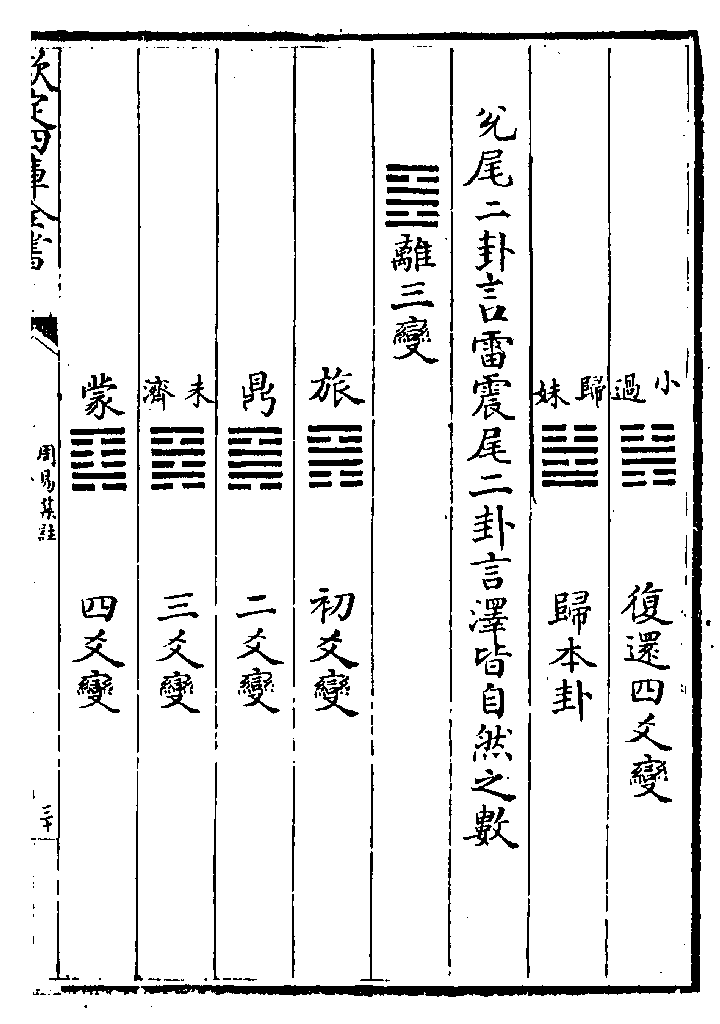 小過 復還四爻變
歸妹 歸本卦
兊尾二卦言雷震尾二卦言澤皆自然之數
離三變
旅 初爻變
鼎 二爻變
未濟 三爻變
蒙 四爻變
欽定四庫全書
周易集註
三十